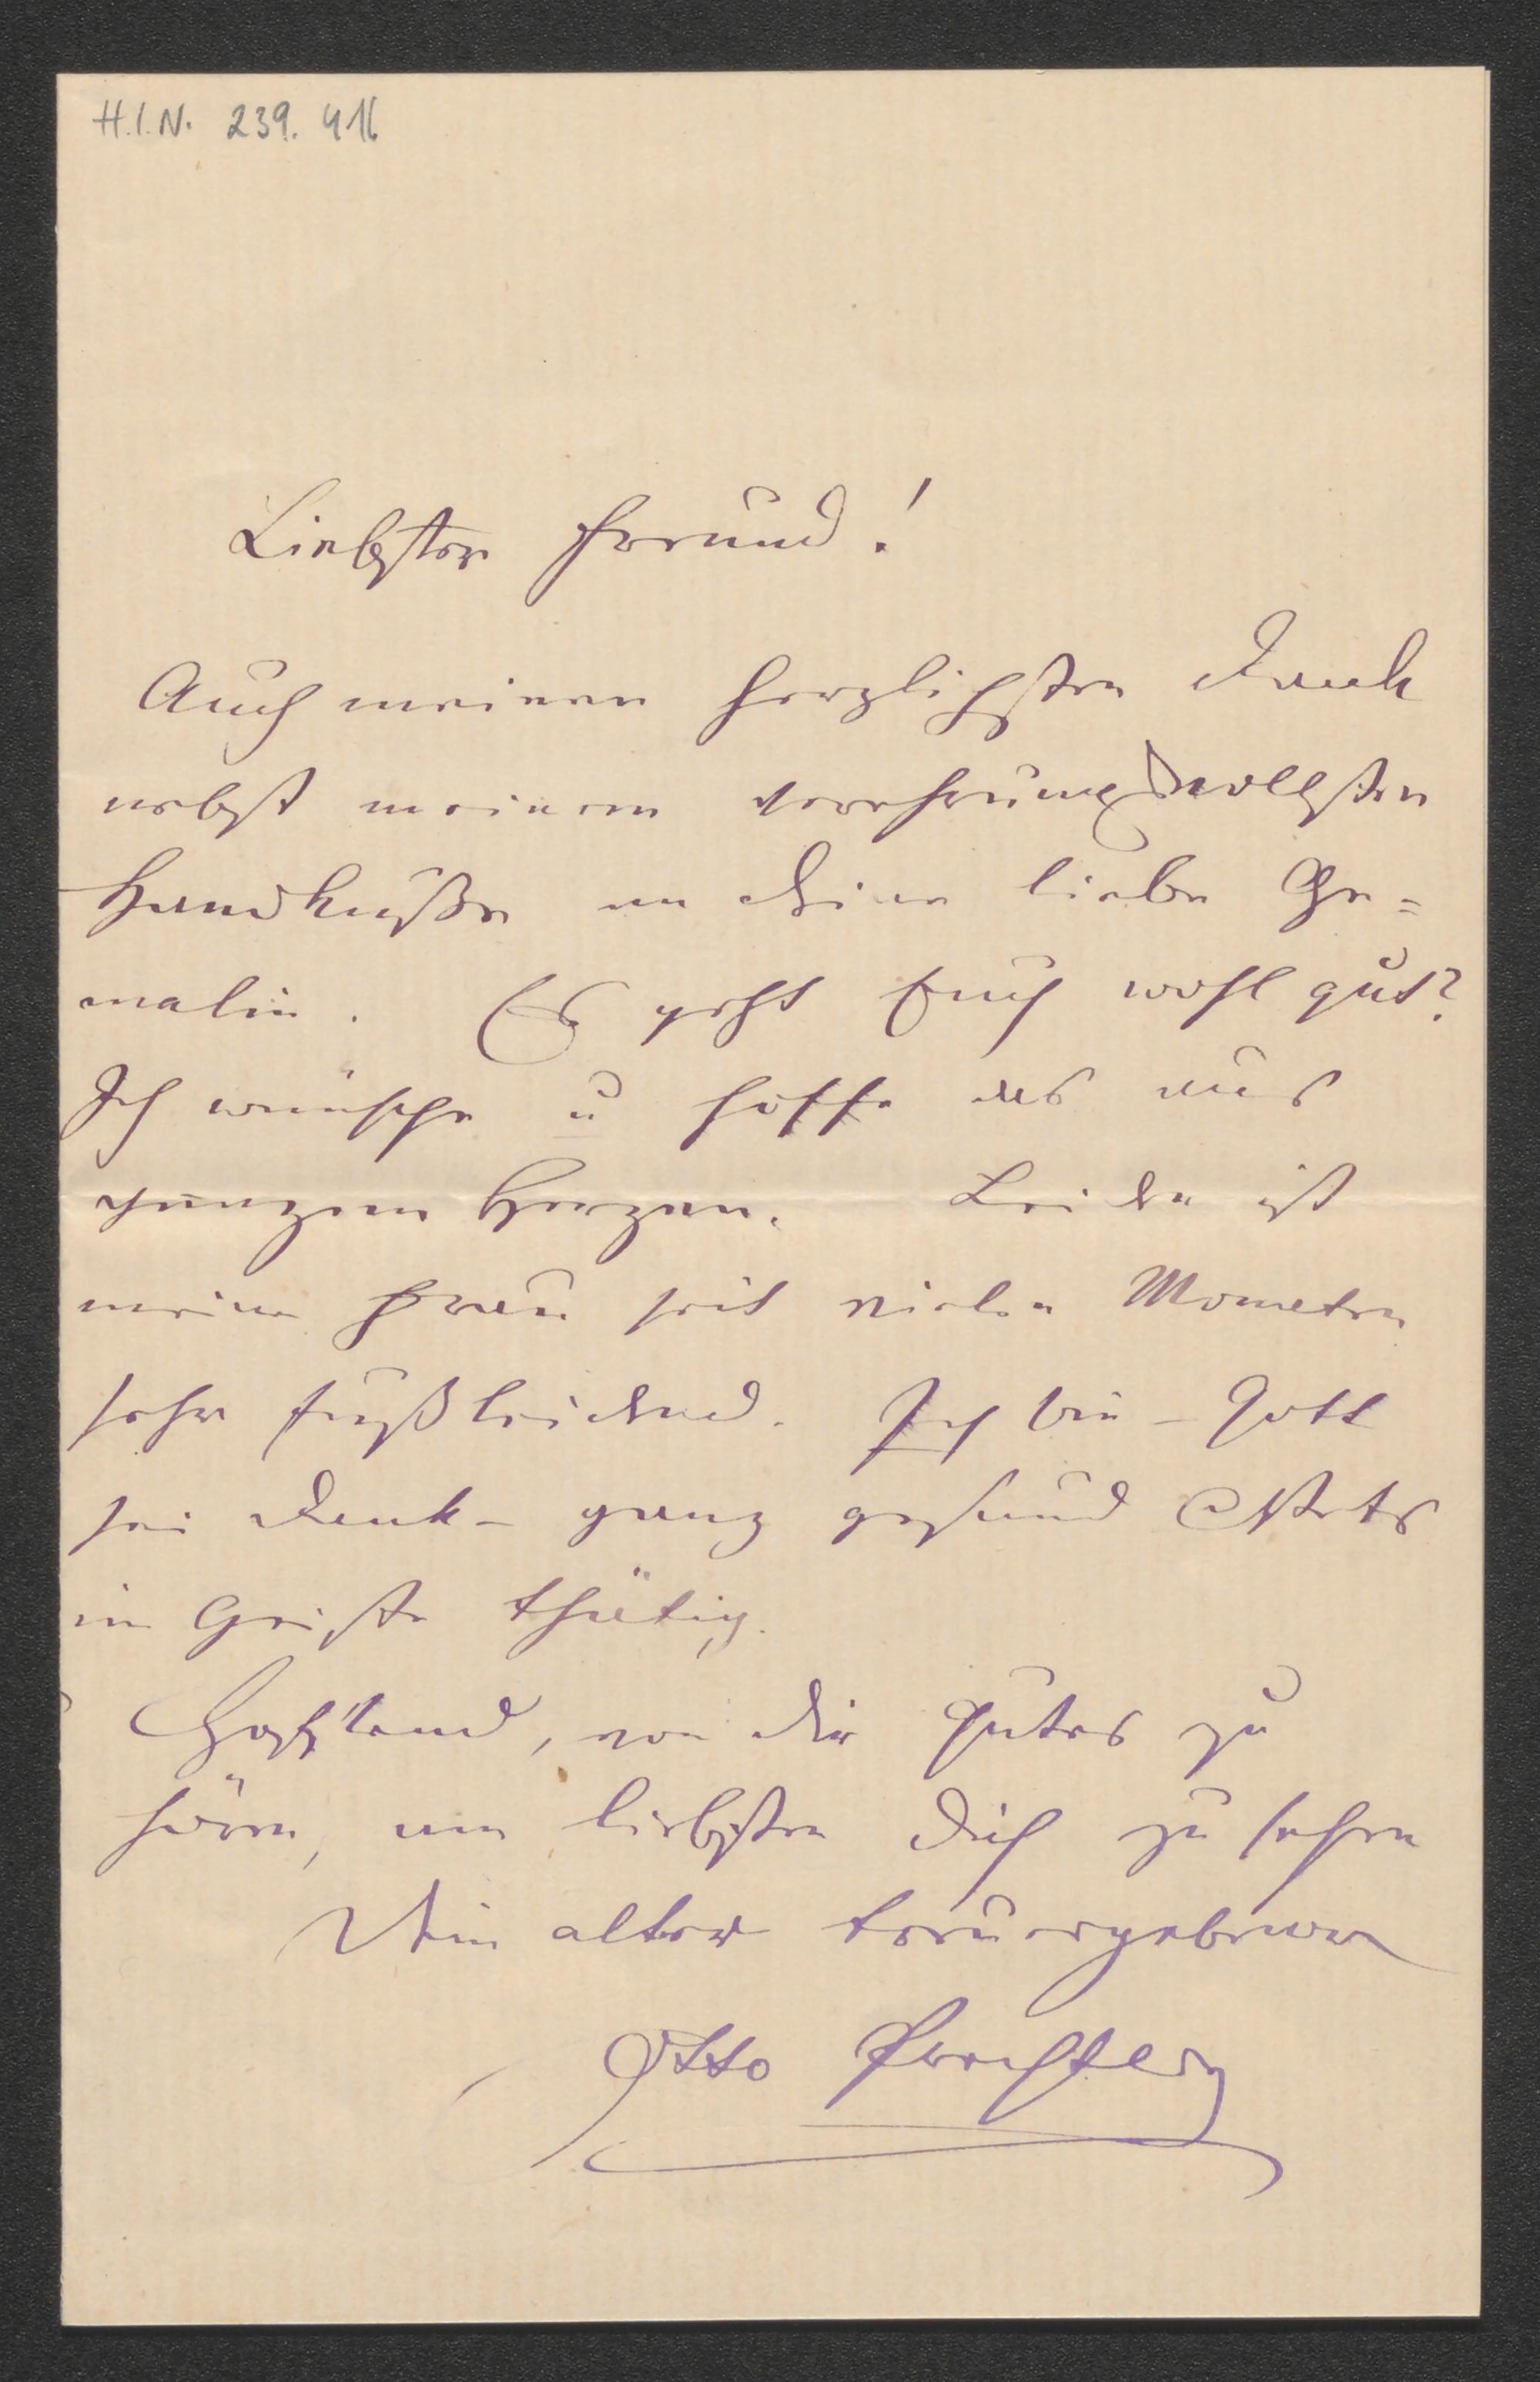 H.I.N. 239.416
Liebster Freund!
Auch meinen herzlichsten Dank
nebst meinem verehrungsvollsten
Handkusse an Deine liebe Ge=
malin. Es geht Euch wohl gut?
Ich wünsche u hoffe es aus
ganzem Herzen. Leider ist
meine Frau seit vielen Monaten
sehr fußleidend. Ich bin – Gott
sei Dank – ganz gesund stets
im Geiste thätig.
Hoffend, von Dir Gutes zu
hören, am liebsten Dich zu sehen
Dein alter treuergebener
Otto Prechtler